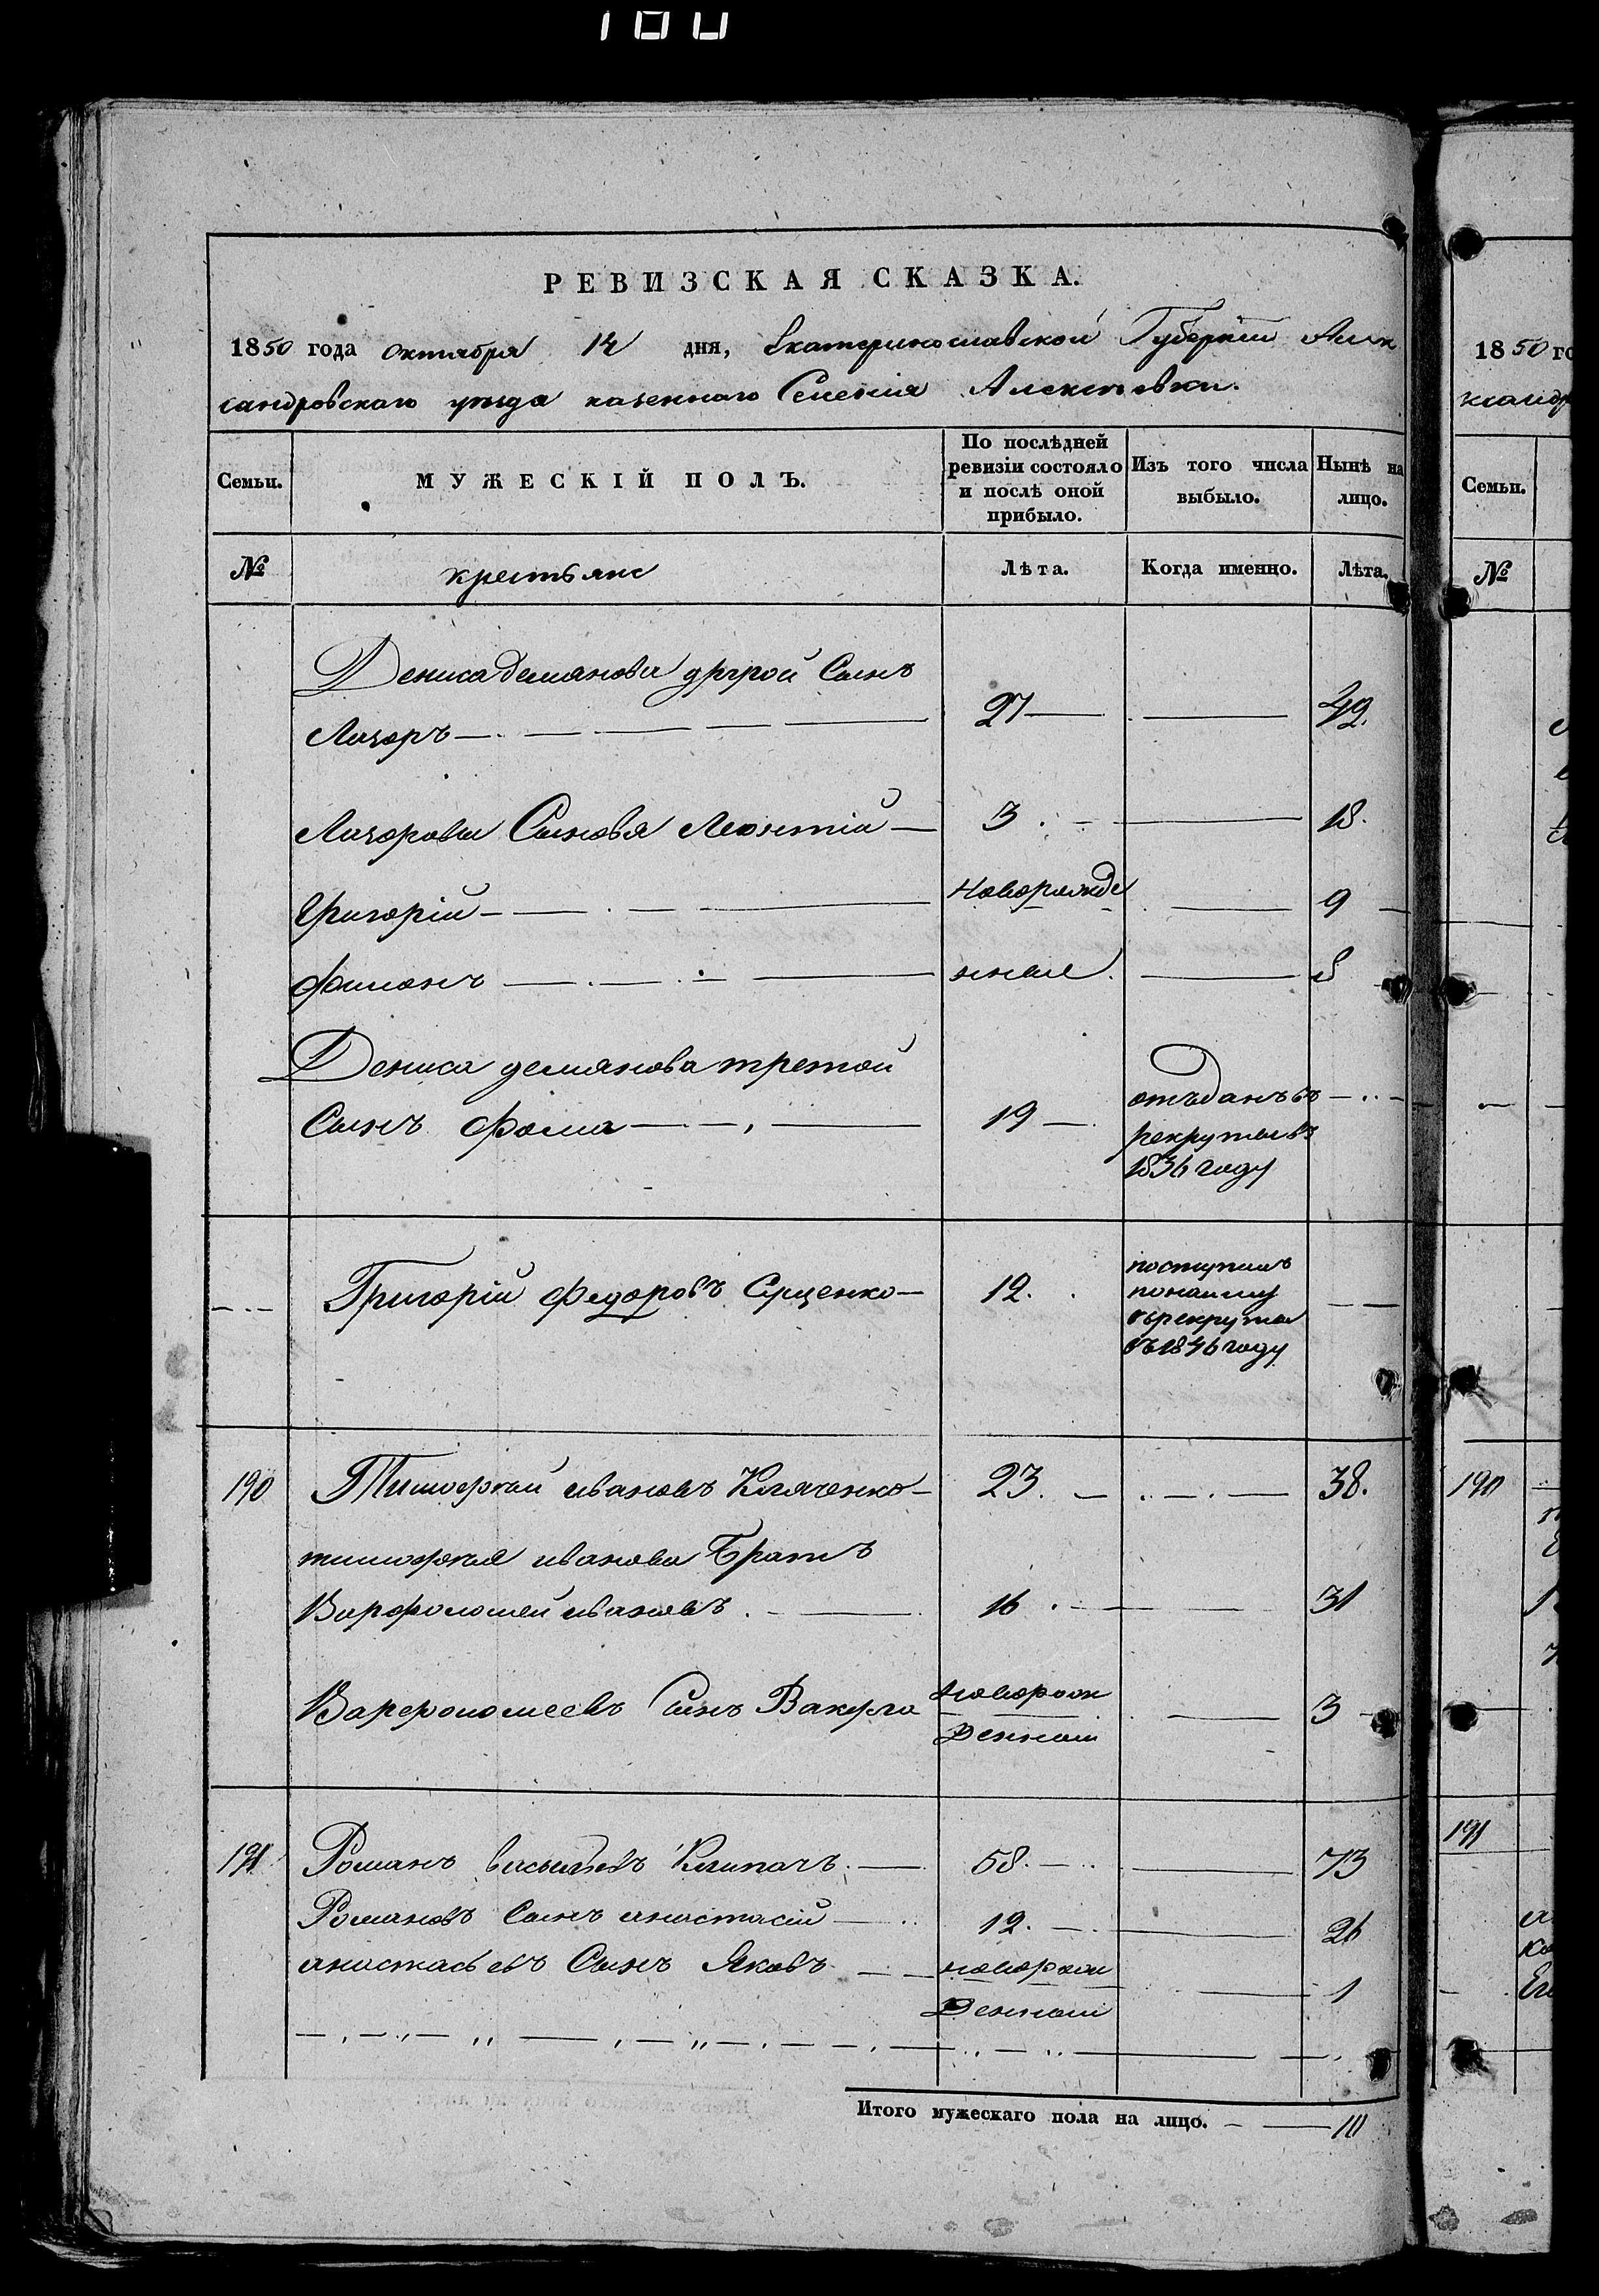 100
РЕВИЗСКАЯ СКАЗКА.
1850 года октября 14 дня, Екатеринославской Губернии Алек
сандровскаго уезда казенного Селения Алексеевки.
Семьи. МУЖЕСКІЙ ПОЛЪ. По послѣдней ревизіи состояло и послѣ оной прибыло. Изъ того числа выбыло. Нынѣ на лицо.
№ крестьяне Лѣта. Когда именно. Лѣта.
Дениса демянова другой Сынъ
Лазоръ 27 42.
Лазоровы Сыновя Леонтій 3 18.
Григорій новорожде 9
Филонъ нные 8
Дениса демянова третой
Сынъ Фома 19 отъданъ въ
рекруты въ
1836 году
Григорій Федоровъ Сущенко 12. поступилъ
понайму
въ рекруты
въ 1846 году
190 Тимофей ивановъ Кляченко 23. 38.
тимофея иванова Братъ
Варфоломей ивановъ 16 31
Варфоломеевъ Сынъ Вакула новорож 3
денный
191 Романъ васильевъ Клипачъ 58. 73
Романовъ Сынъ анастасій 12. 26
анастасьевъ Сынъ Яковъ новорож
денный 1
Итого мужескаго пола на лицо. 10
1850 го
ксандр
Семьи.
№
190
191